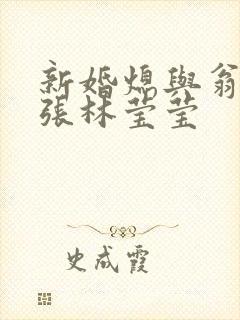 新婚熄與翁
張林莹莹
史成霞